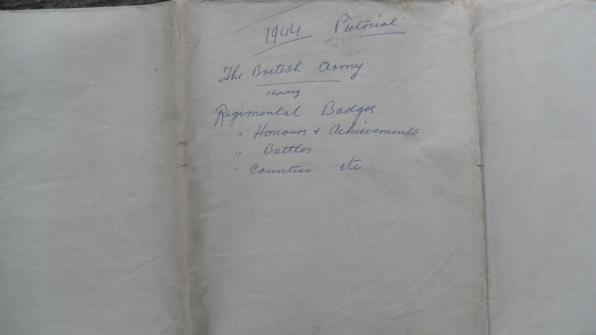 1944 Pictorial
The British Army
showing
Regimental Badges
" Honours & Achievements
" Battles
- Counties etc.